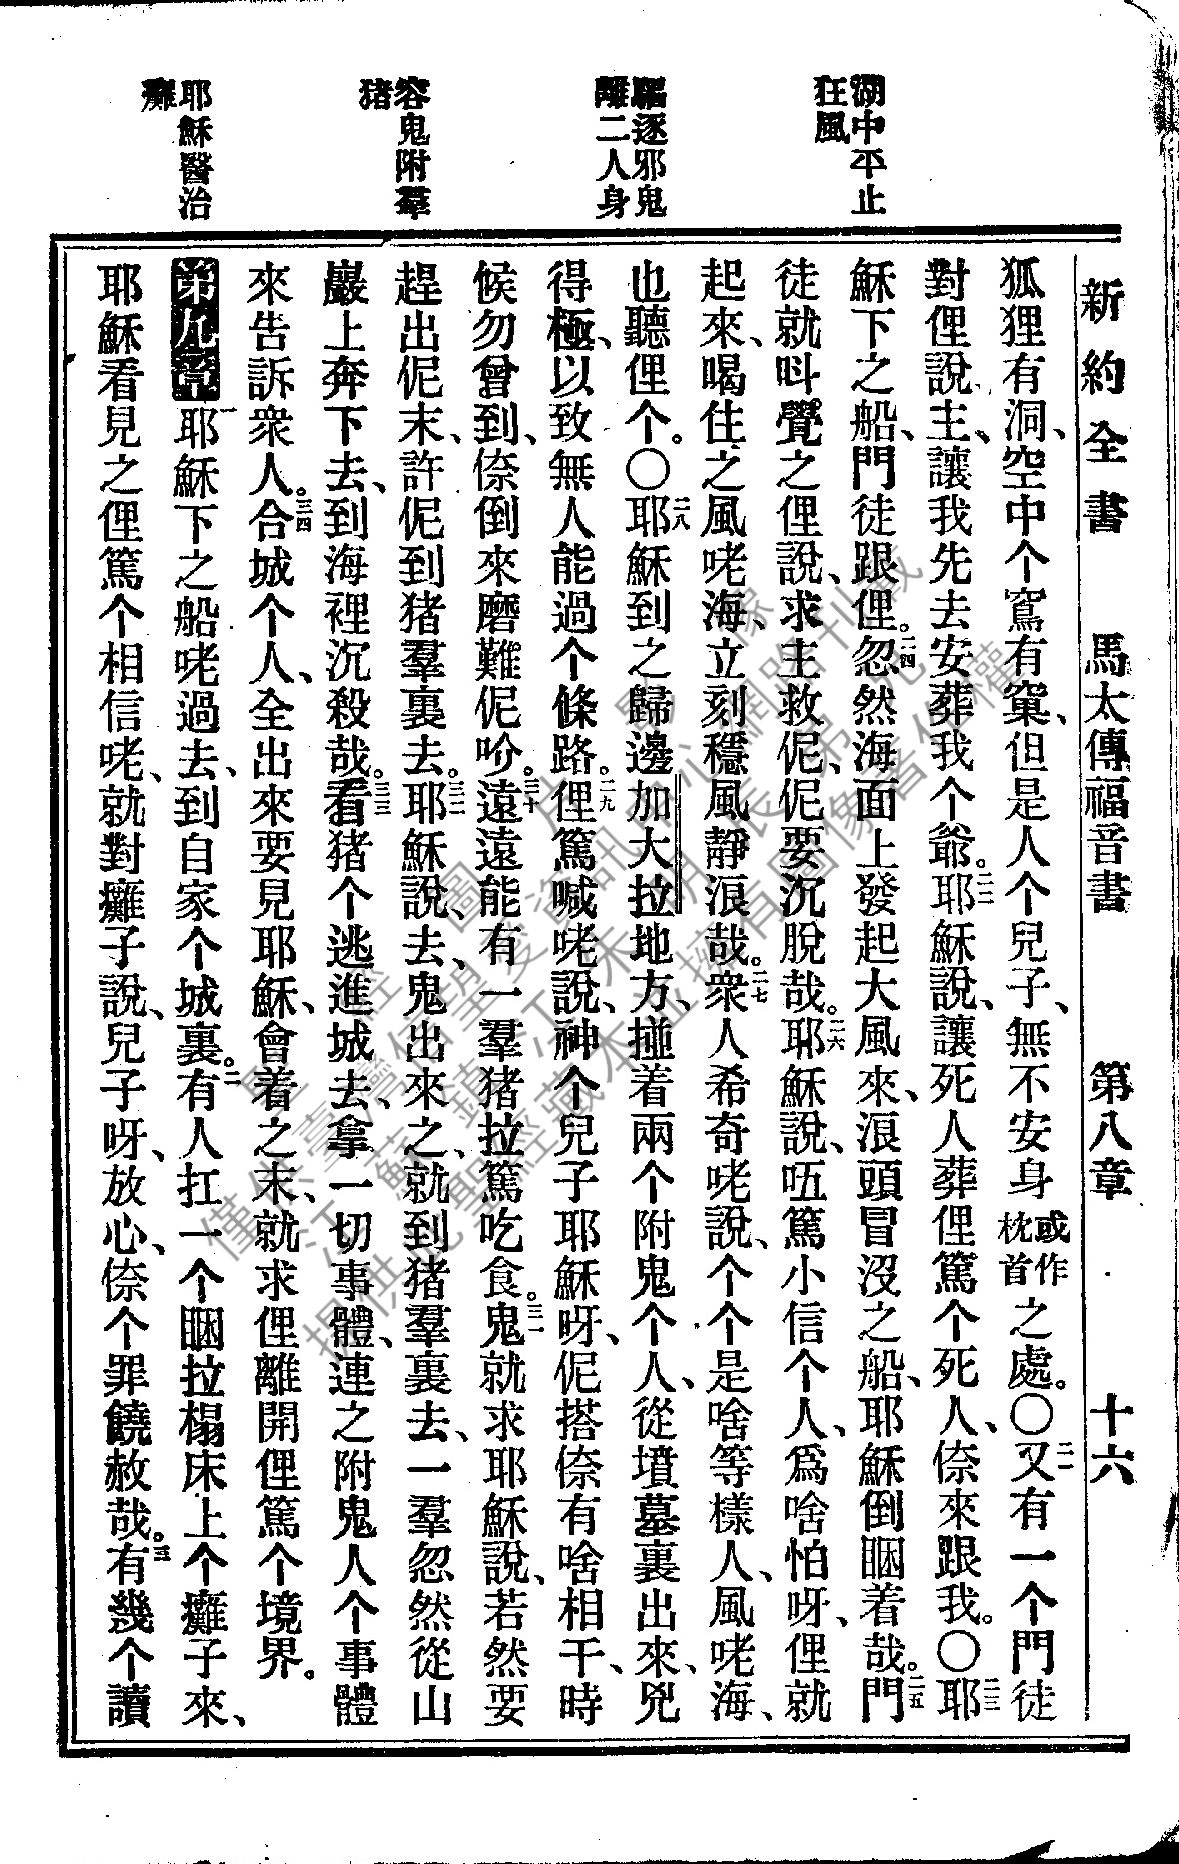 新約全書 馬太傳福音書 第八章 十六
湖中平止
狂風
驅逐邪鬼
離二人身
容鬼附羣
猪
耶穌醫治
癱
狐狸有洞、空中个窵有窠、但是人个兒子、無不安身或作枕首之處。〇二一又有一个門徒
對俚說、主、讓我先去安葬我个爺。二二耶穌說、讓死人葬俚篤个死人、倷來跟我。〇二三耶
穌下之船、門徒跟俚。二四忽然海面上發起大風來、浪頭冒沒之船、耶穌倒睏着哉。二五門
徒就呌覺之俚說、求主救伲、伲要沉脫哉。二六耶穌說、唔篤小信个人、爲啥怕呀、俚就
起來、喝住之風咾海、立刻穩風靜浪哉。二七衆人希奇咾說、个个是啥等樣人、風咾海、
也聽俚个。〇二八耶穌到之歸邊加大拉地方、掽着兩个附鬼个人、從墳墓裏出來、兇
得極、以致無人能過个條路。二九俚篤喊咾說、神个兒子耶穌呀、伲搭倷有啥相干、時
候勿曾到、倷倒來磨難伲吤。三十遠遠能有一羣猪拉篤吃食。三一鬼就求耶穌說、若然要
趕出伲末、許伲到猪羣裏去。三二耶穌說、去、鬼出來之、就到猪羣裏去、一羣忽然從山
巖上奔下去、到海裡沉殺哉。三三看猪个逃進城去、拿一切事體、連之附鬼人个事體
來告訴衆人。三四合城个人、全出來要見耶穌、會着之末、就求俚離開俚篤个境界。
第九章 一耶穌下之船咾過去、到自家个城裏。二有人扛一个睏拉榻床上个癱子來、
耶穌看見之俚篤个相信咾、就對癱子說、兒子呀、放心、倷个罪饒赦哉。三有幾个讀